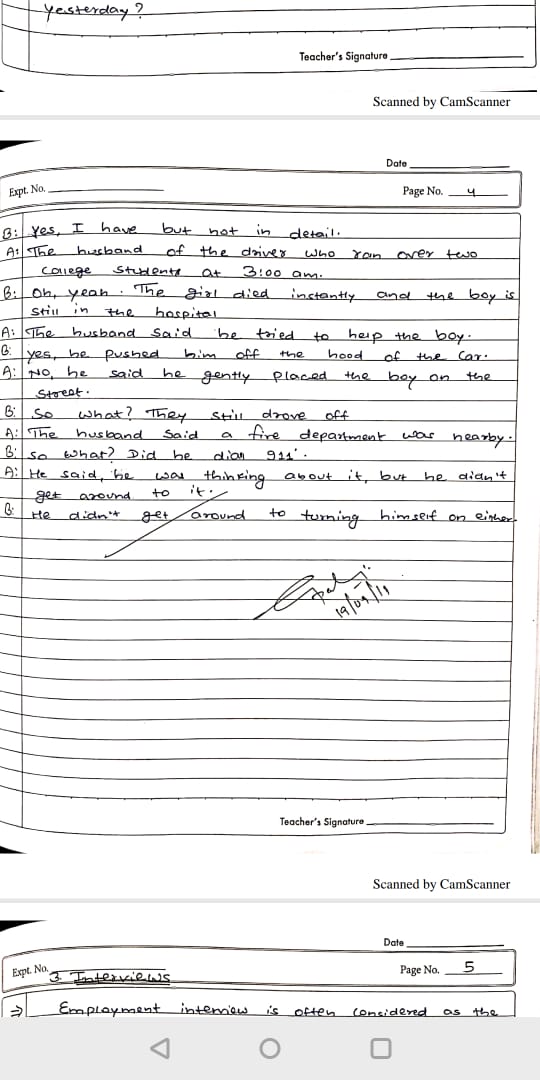 yesterday ?
Teacher's Signature
Scanned by CamScanner
Date
Expt. No.
Page No. 4
B: Yes, I have but not in detail.
A: The husband of the driver who ran over two
college students at 3:00 am.
B: Oh, yeah. The girl died instantly and the boy is
still in the hospital
A: The husband said he tried to help the boy.
B: yes, he pushed him off the hood of the car.
A: No, he said he gently placed the boy on the
street.
B: So what? They still drove off
A: The husband said a fire department was nearby.
B: so what? Did he dial 911'.
A: He said, he was thinking about it, but he didn't
get around to it.
B: He didn't get around to turning himself on either.
19/09/19
Teacher's Signature
Scanned by CamScanner
Date
Expt. No.
Page No. 5
3. Interviews
⇒ Employment interview is often considered as the